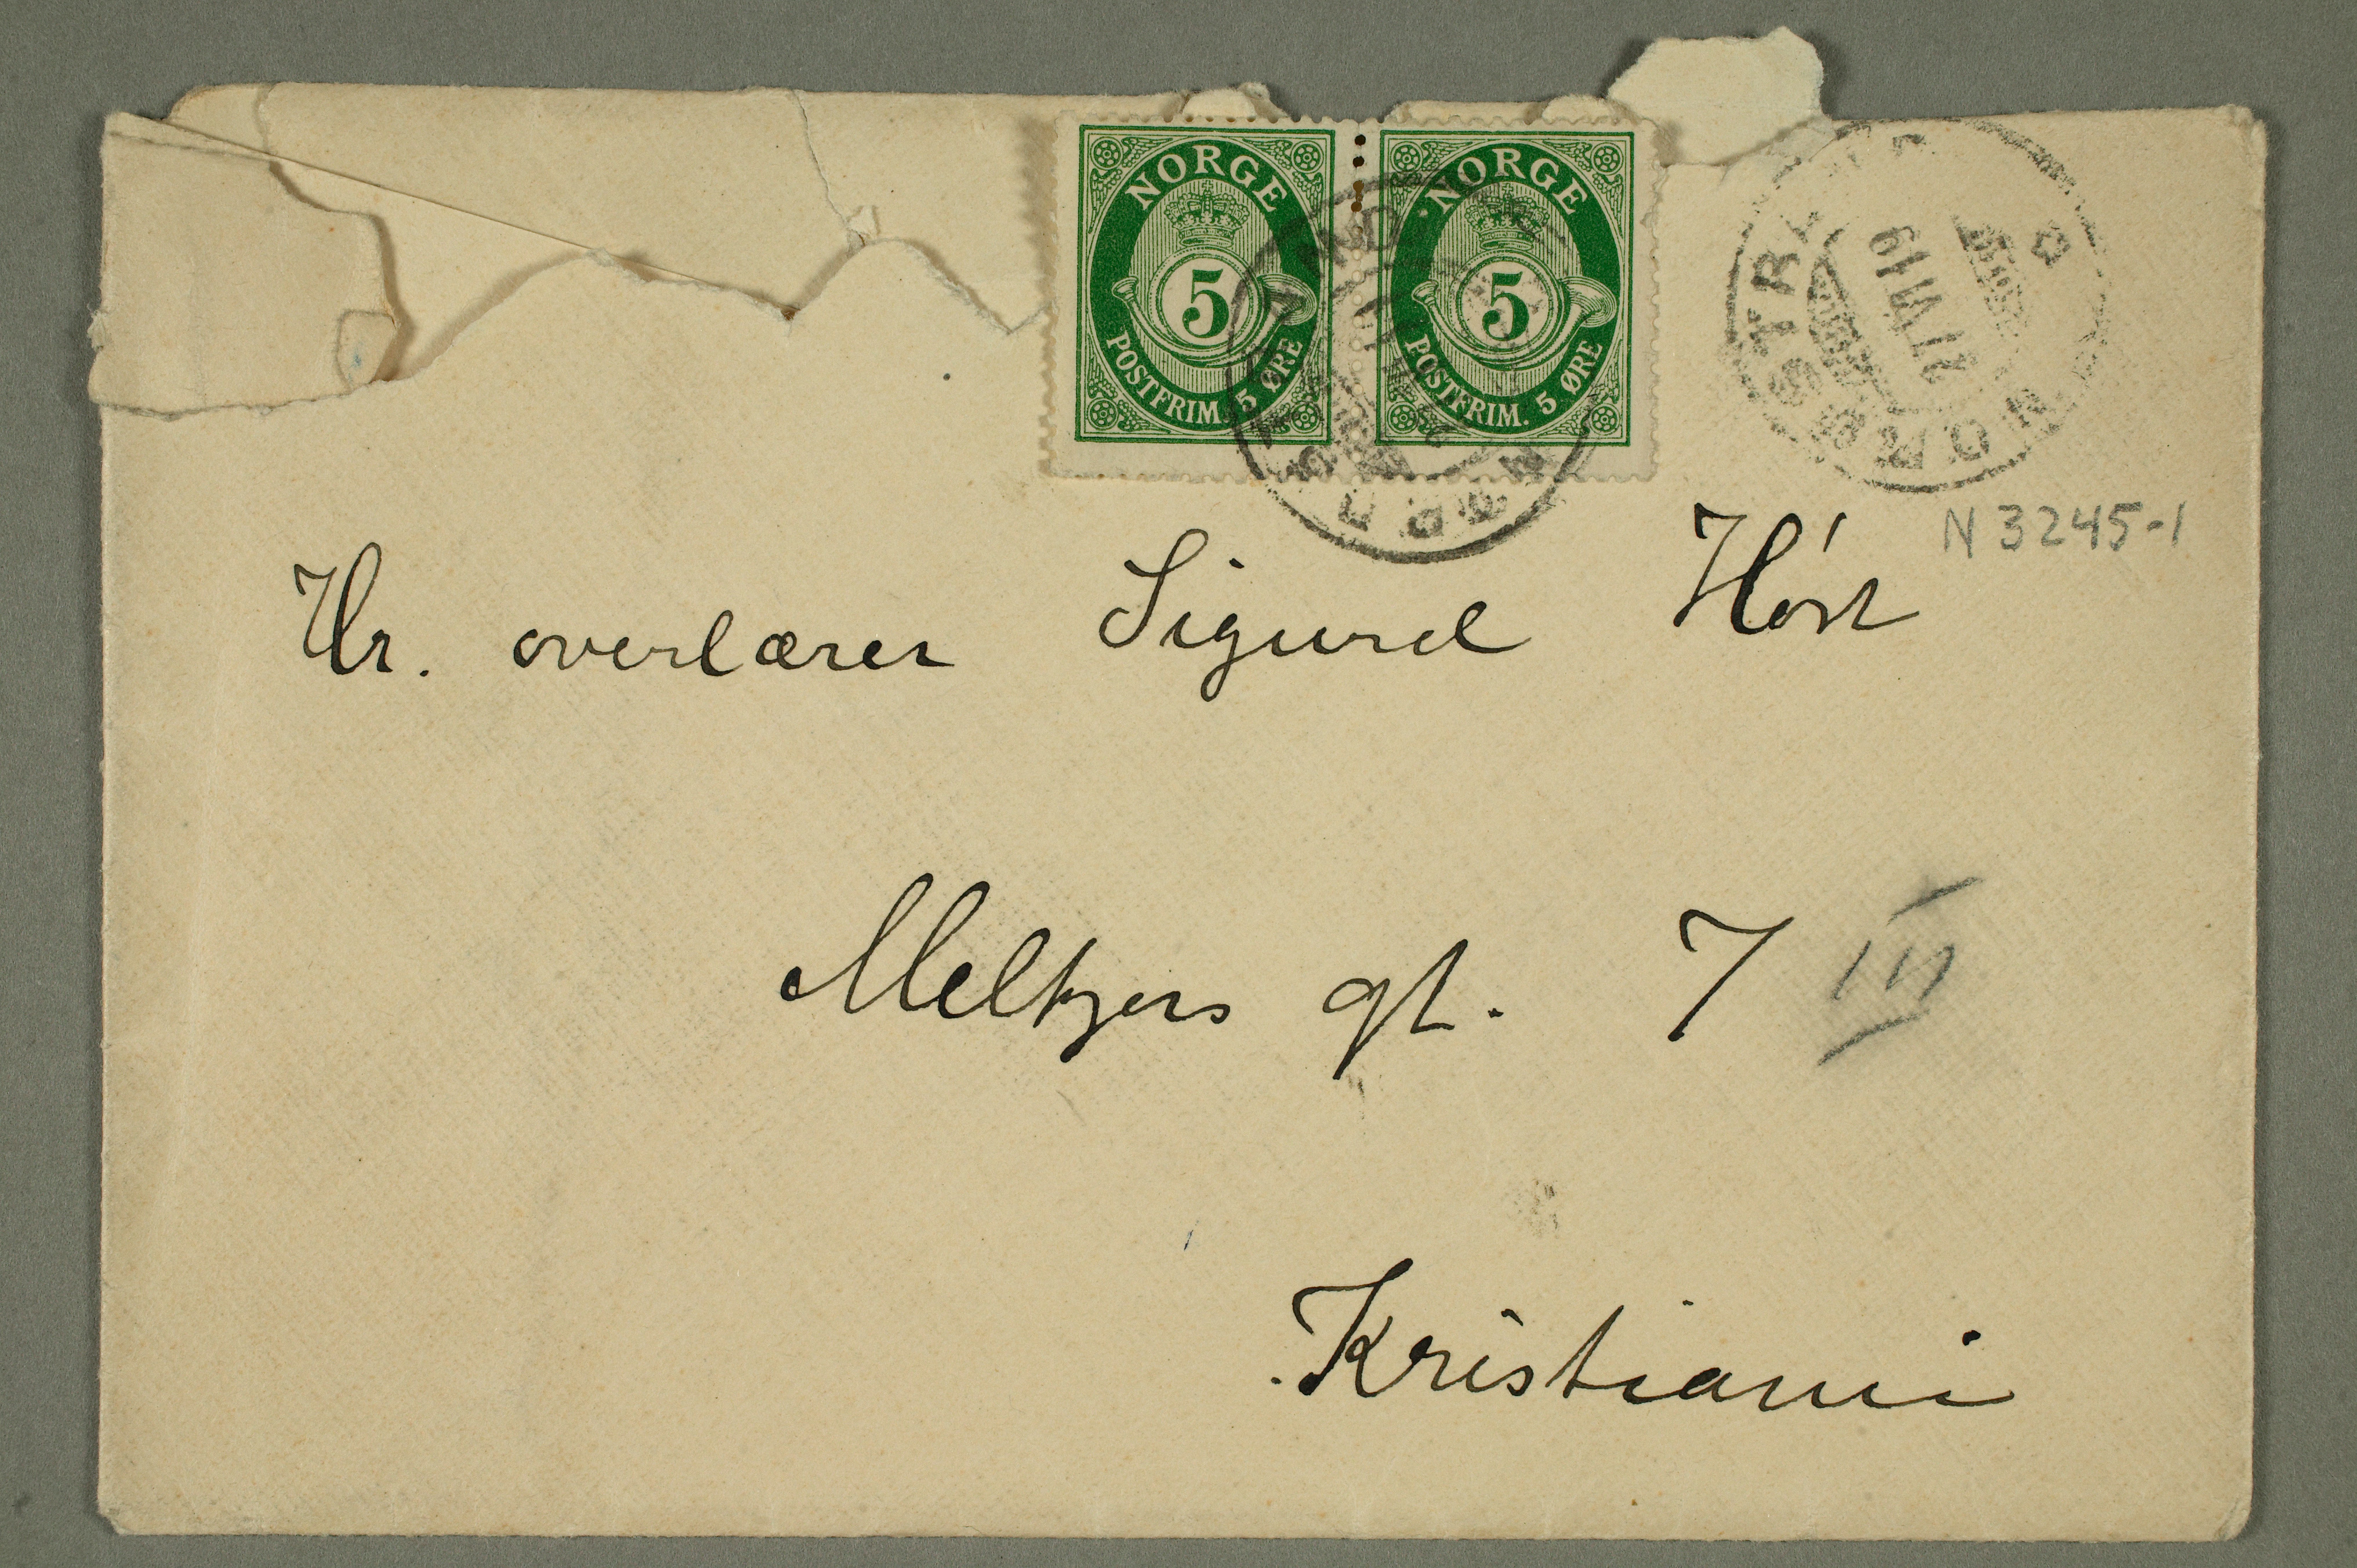 NORGE
5
POSTFRIM. 5 ØRE
NORGE
5
POSTFRIM. 5 ØRE
N 3245-1
Hr. overlærer Sigurd Høst
Meltzers gt. 7 III
Kristiani